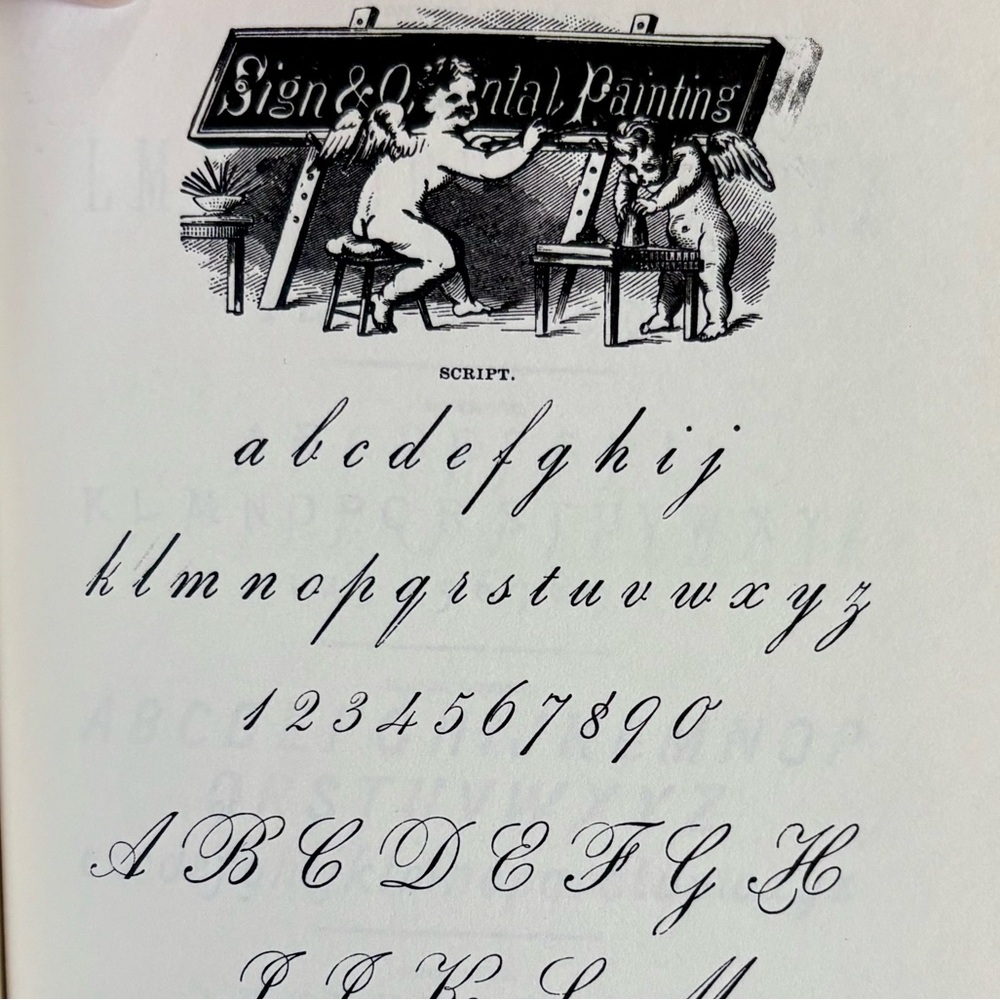 Sign & O ntal Painting
SCRIPT.
a b c d e f g h i j
k l m n o p q r s t u v w x y z
1 2 3 4 5 6 7 8 9 0
A B C D E F G H
I J K L M